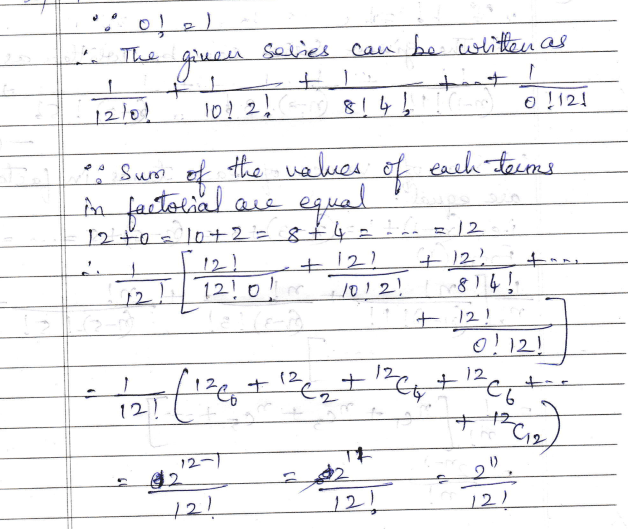 ∵ 0! = 1
∴ The given series can be written as
1/12!0! + 1/10! 2! + 1/8! 4! + ... + 1/0! 12!
∵ Sum of the values of each terms
in factorial are equal
12+0 = 10+2 = 8+4 = --- = 12
∴ 1/12! [ 12!/12! 0! + 12!/10! 2! + 12!/8! 4! + ...
+ 12!/0! 12! ]
= 1/12! ( ¹²C₀ + ¹²C₂ + ¹²C₄ + ¹²C₆ + ---
+ ¹²C₁₂ )
= 2¹²⁻¹/12! = 2¹¹/12! = 2¹¹/12!.